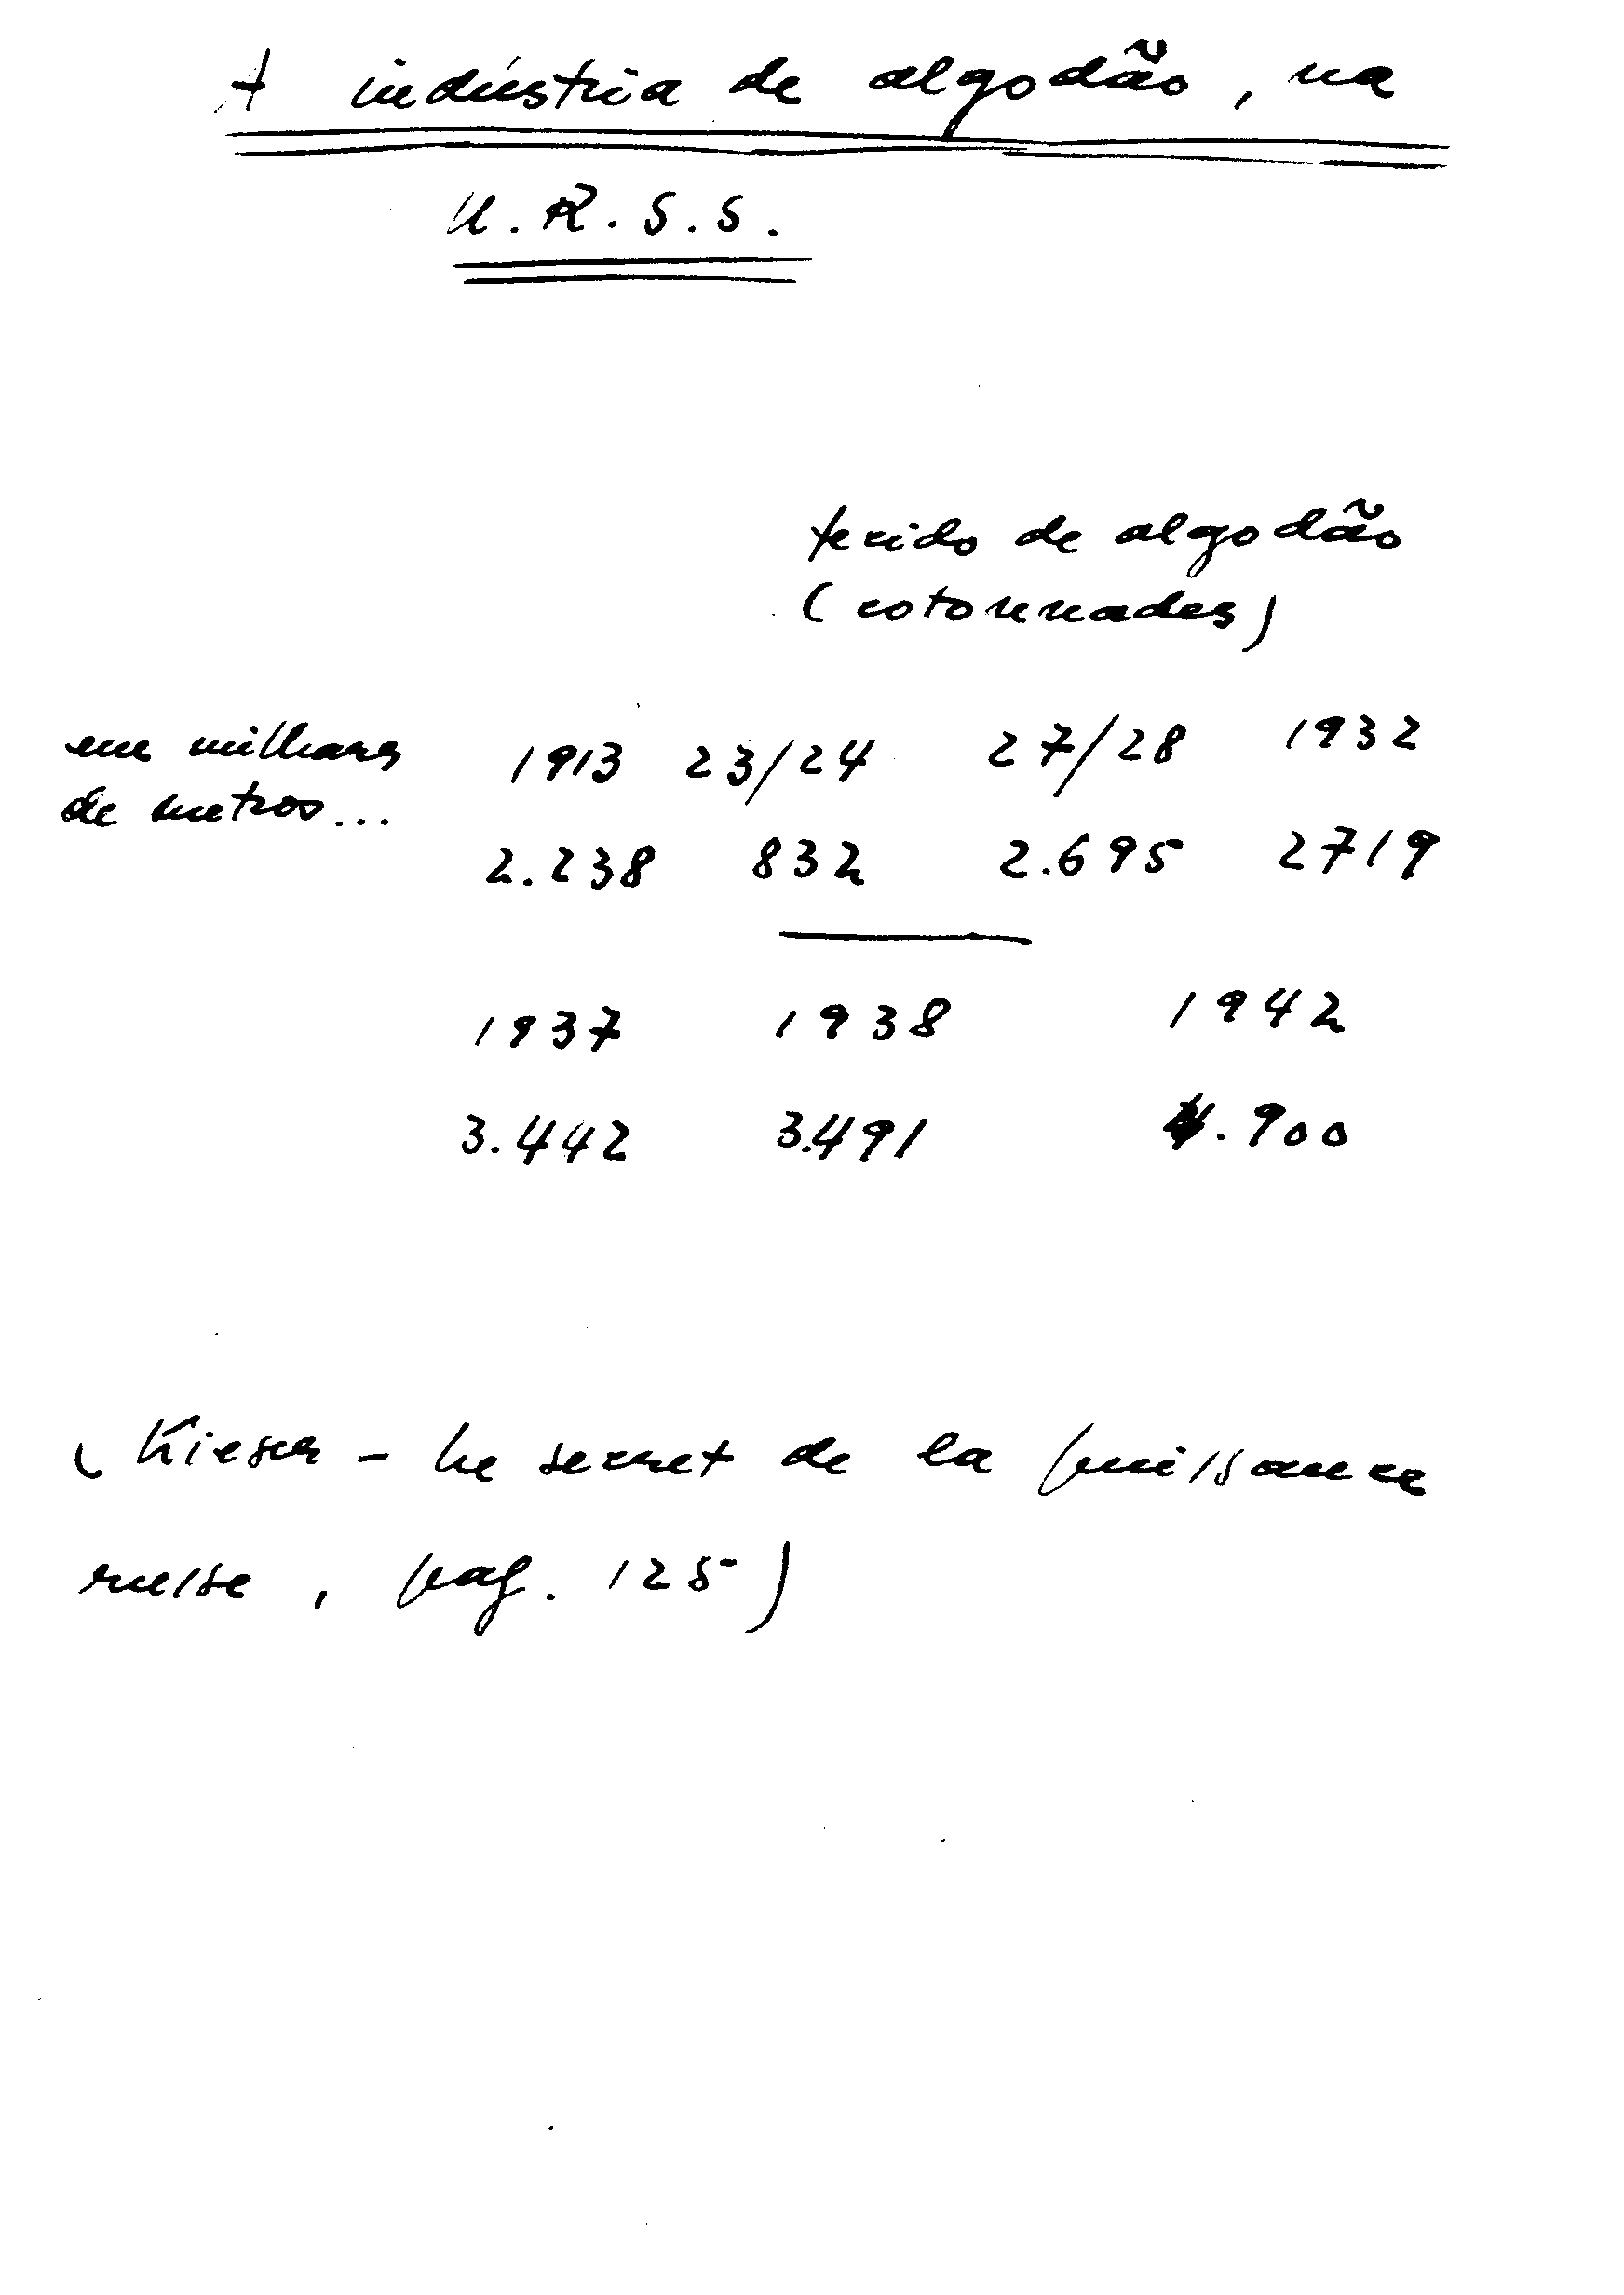 A indústria de algodão, na
U.R.S.S.
tecido de algodão
(cotonnades)
em milhares
de metros...
1913 23/24 27/28 1932
2.238 832 2.695 2719
1937 1938 1942
3.442 3.491 4.900
( - Le secret de la puissance
russe, pag. 125)